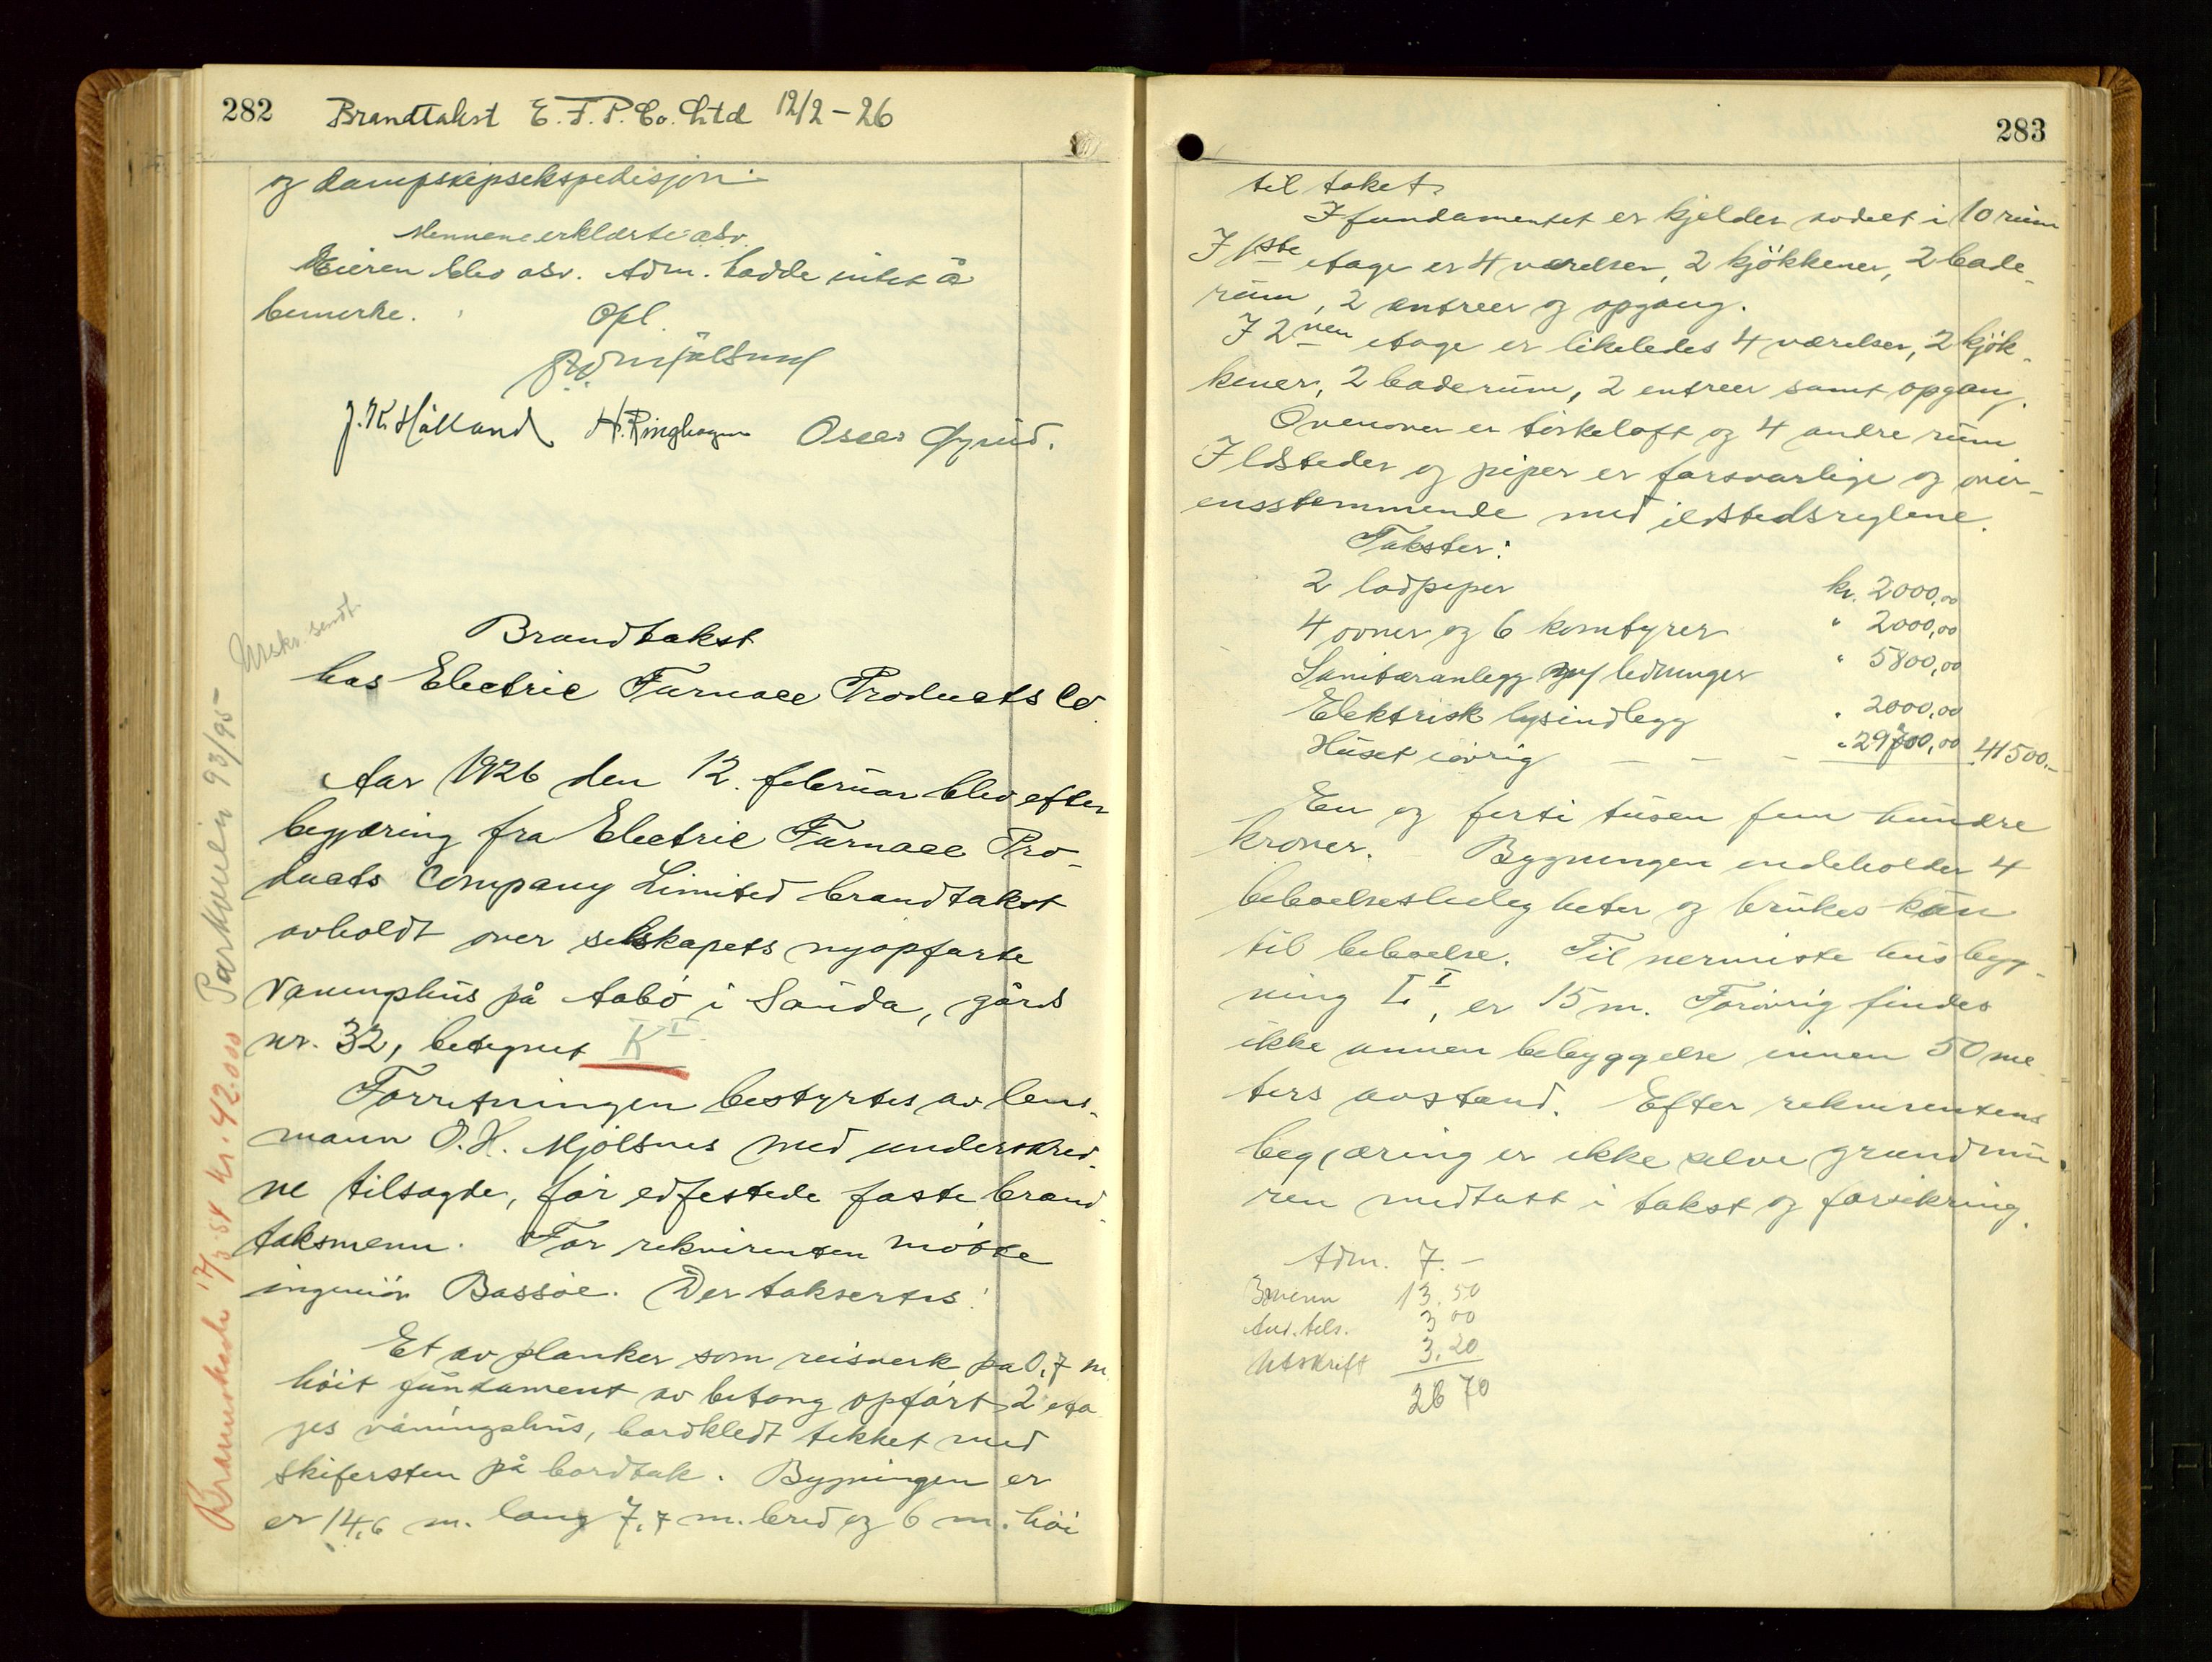 282 Brandtakst E. F. P. Co. Ltd 12/2-26
og dampskipsekspedisjon.
Mennene erklærte asv.
Eieren blev asv. Adm. hadde intet å
bemerke.
Opl.
J. K. Hålland H. Ringhagen Oscar
Utskr. sendt
Brandtakst
hos Electric Furnace Products Co.
Aar 1926 den 12. februar blev efter
begjæring fra Electric Furnace Pro-
ducts Company Limited brandtakst
avholdt over selskapets nyopførte
vaaningshus på Aabø i Sauda, gårds
nr. 32, betegnet K I
Forretningen bestyrtes av lens-
mann O. H. Mjölsnes med underskrev-
ne tilsagde, før edfestede faste brand-
taksmenn. For rekvirenten møtte
ingeniør Bassøe. Der taksertes:
Et av planker som reisverk på 0,7 m
höit fundament av betong opført 2 eta
ges våningshus, bordkledt tekket med
skifersten på bordtak. Bygningen er
er 14,6 m. lang 7,7 m. bred og 6 m. höi
Brannkasse 17/3-54 kr. 42.000 Parkveien 93/95
283
til taket.
I fundamentet er kjelder avdelt i 10 rum
I 1ste etage er 4 værelser, 2 kjökkener, 2 bade-
rum, 2 entreer og opgang.
I 2nen etage er likeledes 4 værelser, 2 kjök-
kener, 2 baderum, 2 entreer samt opgang.
Ovenover er törkeloft og 4 andre rum
Ildsteder og piper er forsvarlige og over-
ensstemmende med ildstedsreglene.
Takster:
2 lodpiper kr. 2000,00
4 ovner og 6 komfyrer " 2000,00
Sanitæranlegg m/ ledninger " 5800,00
Elektrisk lysindlegg " 2000,00
Huset iøvrig — — — " 29700,00 41500.-
En og förti tusen fem hundre
kroner. – Bygningen indeholder 4
beboelsesleiligheter og brukes kun
til beboelse. Til nermeste husbygg-
ning L I, er 15 m. Forövrig findes
ikke annen bebyggelse innen 50 me-
ters avstand. Efter rekvirentens
begjæring er ikke selve grundmu-
ren medtatt i takst og forsikring.
Adm. 7.-
3 menn 13.50
And. tils. 3 00
Utskrift 3.20
26 70